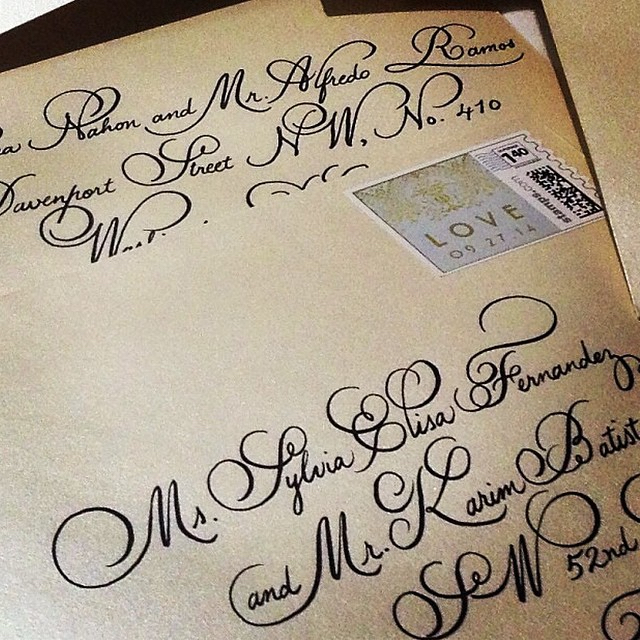 Nahon and Mr. Alfredo Ramos
Davenport Street NW, No. 410
1.50
stamps.com
LOVE
09.27.14
Ms. Sylvia Elisa Fernandez
and Mr. Karim Batist
SW 52nd